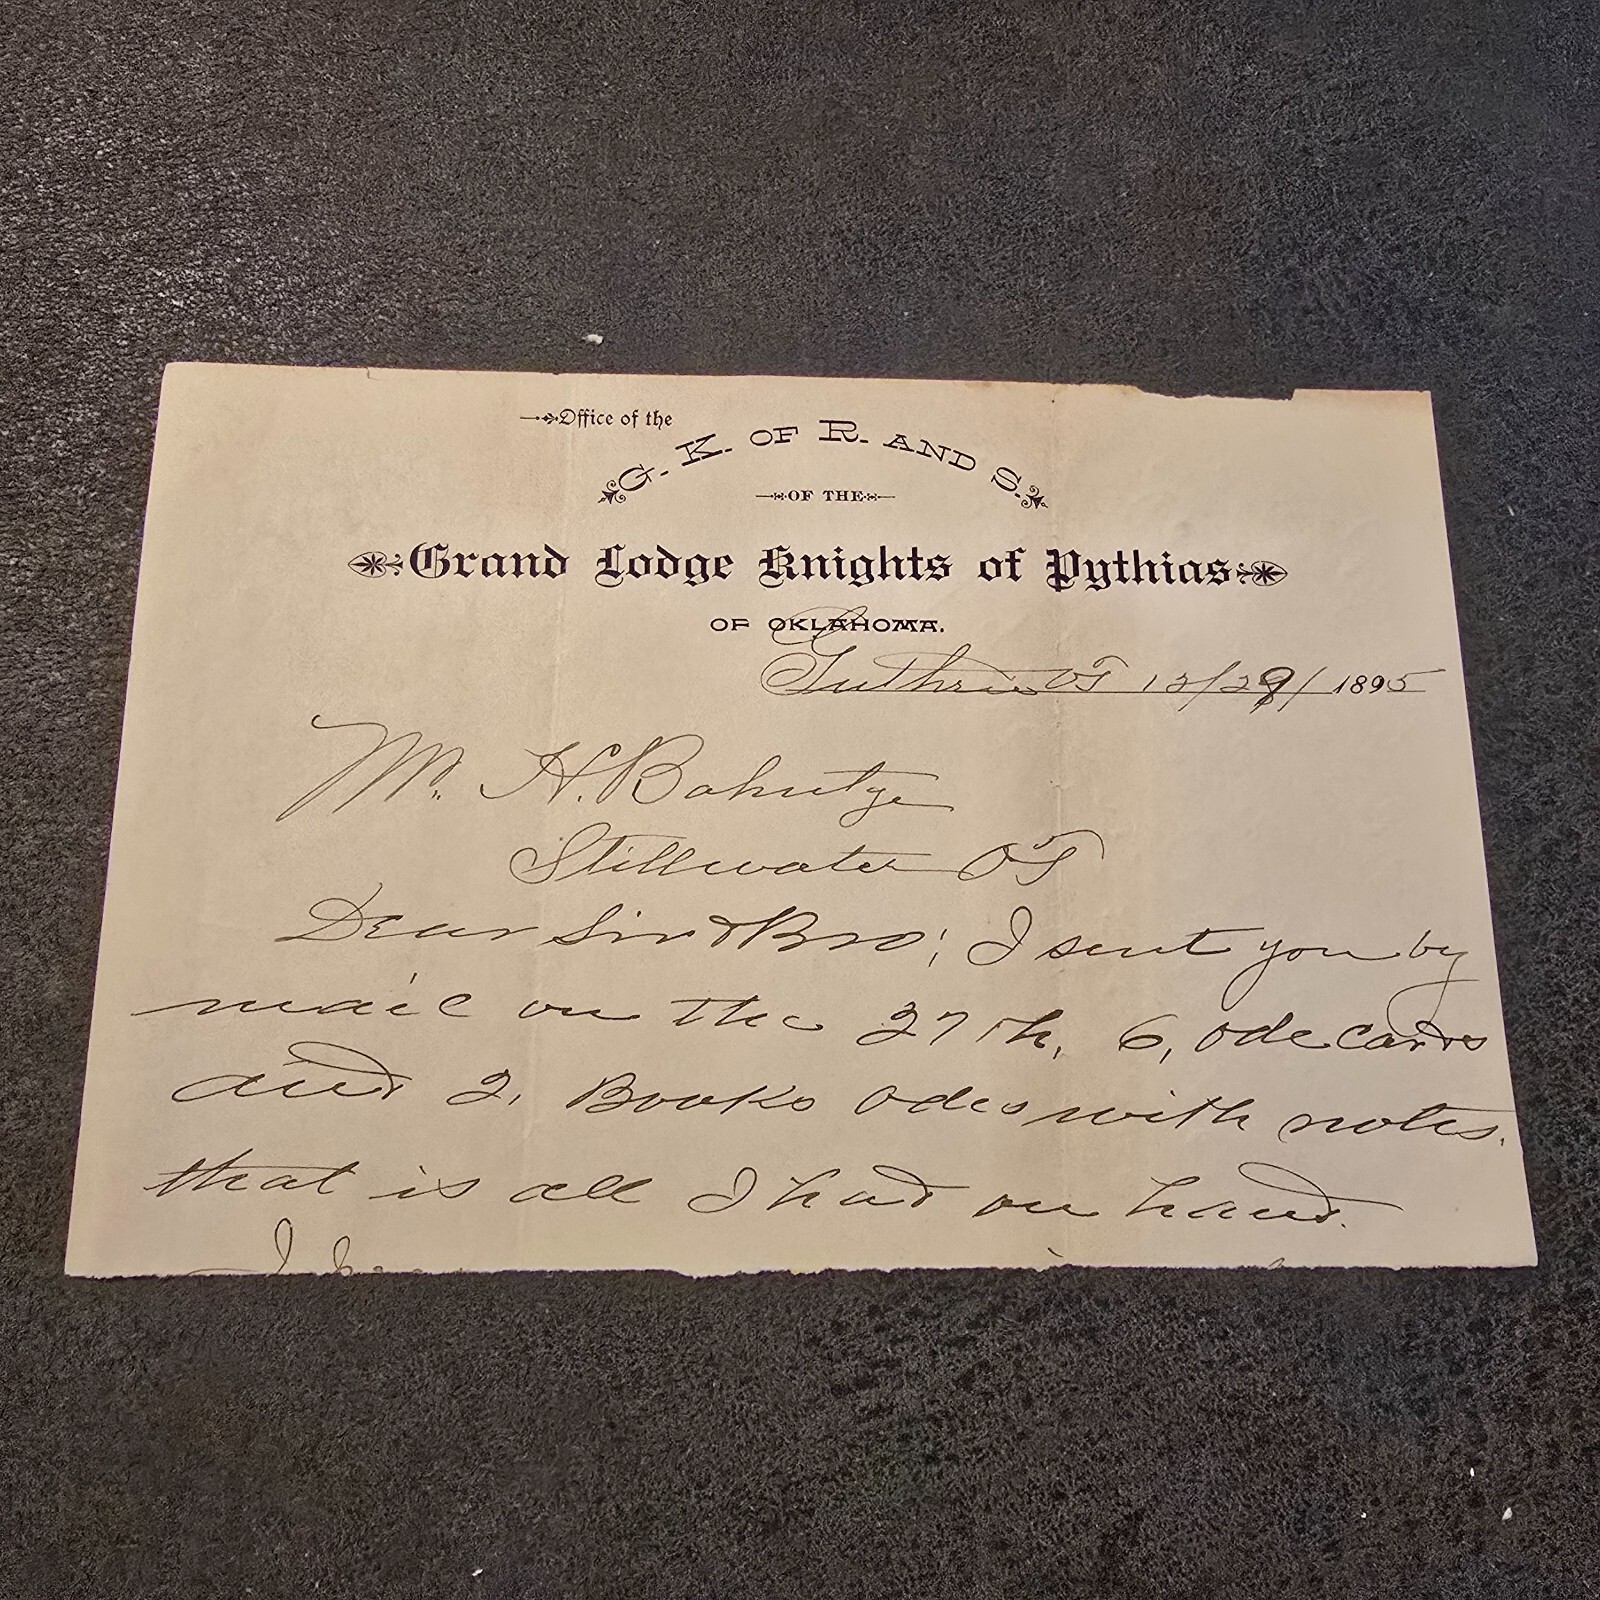 Office of the
G. K. OF R. AND S.
OF THE
Grand Lodge Knights of Pythias
OF OKLAHOMA.
Guthrie OT 12/29/1895
Mr. H. Bahntge
Stillwater OT
Dear Sir & Bro; I sent you by
mail on the 27th, 6, ode cards
and 2, Books Odes with notes.
that is all I had on hand.
I